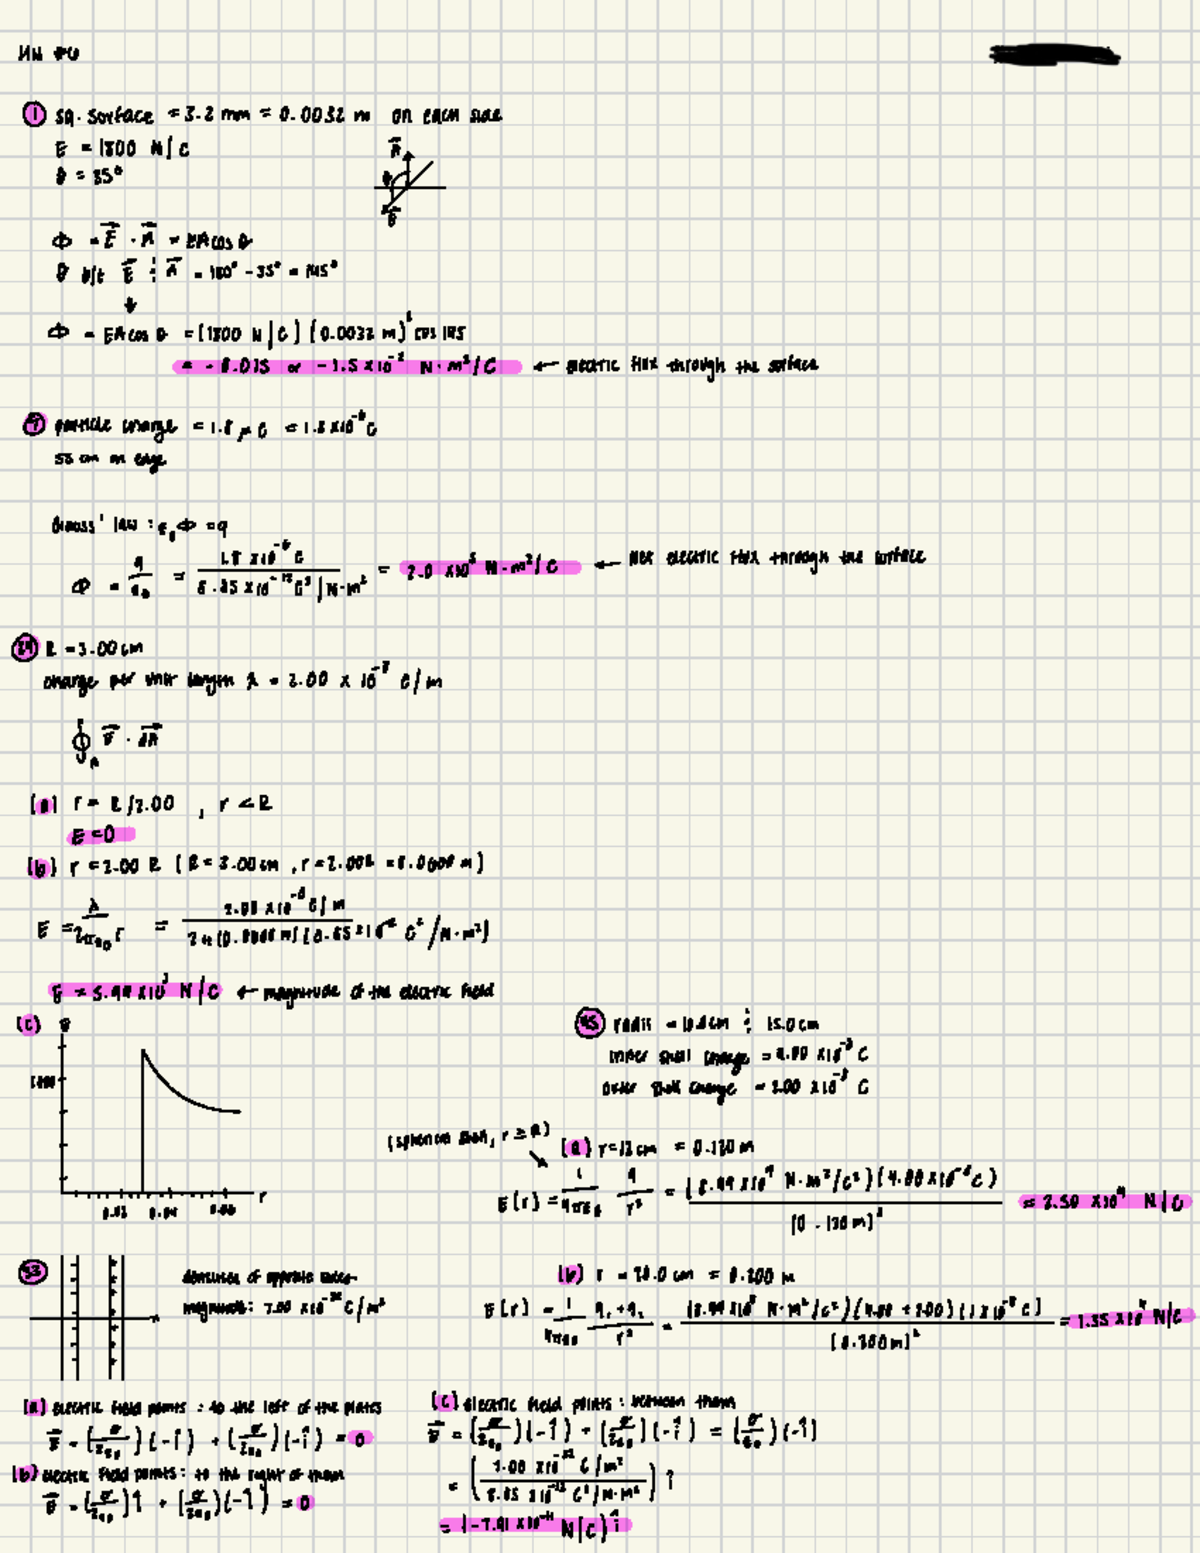 HW #6
① sq. surface = 3.2 mm = 0.0032 m on each side
E = 1800 N/C
θ = 35°
Φ = E⃗ · A⃗ = EA cos θ
θ b/t E⃗ ; A⃗ = 180° - 35° = 145°
Φ = EA cos θ = (1800 N/C) (0.0032 m)² cos 145
= -0.015 or -1.5 x 10⁻² N·m²/C ← electric flux through the surface
particle charge = 1.8 μC = 1.8 x10⁻⁶ C
55 cm on edge
Gauss' law : ε₀ Φ = q
Φ = q/ε₀ = 1.8 x10⁻⁶ C / 8.85 x 10⁻¹² C²/N·m² = 2.0 x10⁵ N·m²/C ← net electric flux through the surface
㉔ R = 3.00 cm
charge per unit length λ = 2.00 x 10⁻⁸ C/m
∮_A E⃗ · dA⃗
(a) r = R/2.00 , r < R
E = 0
(b) r = 2.00 R (R = 3.00 cm , r = 2.00R = 0.0600 m)
E = λ/2πε₀r = 2.00 x10⁻⁸ C/m / 2π(0.0600 m)(8.85 x10⁻¹² C²/N·m²)
E = 5.99 x10³ N/C ← magnitude of the electric field
(c) E
r
0.02 0.04 0.06
㊺ radii = 10.0 cm ; 15.0 cm
inner shell charge = 4.00 x10⁻⁸ C
outer shell charge = 2.00 x10⁻⁸ C
(spherical shell, r ≥ R)
(a) r = 12 cm = 0.120 m
E(r) = 1/4πε₀ q/r² = (8.99 x10⁹ N·m²/C²)(4.00 x10⁻⁸ C) / (0.120 m)² = 2.50 x10⁴ N/C
(b) r = 20.0 cm = 0.200 m
E(r) = 1/4πε₀ q₁+q₂/r² = (8.99 x10⁹ N·m²/C²)(4.00 + 2.00)(1 x10⁻⁸ C) / (0.200 m)² = 1.35 x10⁴ N/C
densities of opposite
magnitude: 7.00 x10⁻²² C/m²
(a) electric field points : to the left of the plates
E⃗ = (σ/2ε₀)(-î) + (σ/2ε₀)(-î) = 0
(b) electric field points : to the right of them
E⃗ = (σ/2ε₀)î + (σ/2ε₀)(-î) = 0
(c) electric field points : between them
E⃗ = (σ/2ε₀)(-î) + (σ/2ε₀)(-î) = (σ/ε₀)(-î)
= (7.00 x10⁻²² C/m² / 8.85 x10⁻¹² C²/N·m²) î
= (-7.91 x10⁻¹¹ N/C) î